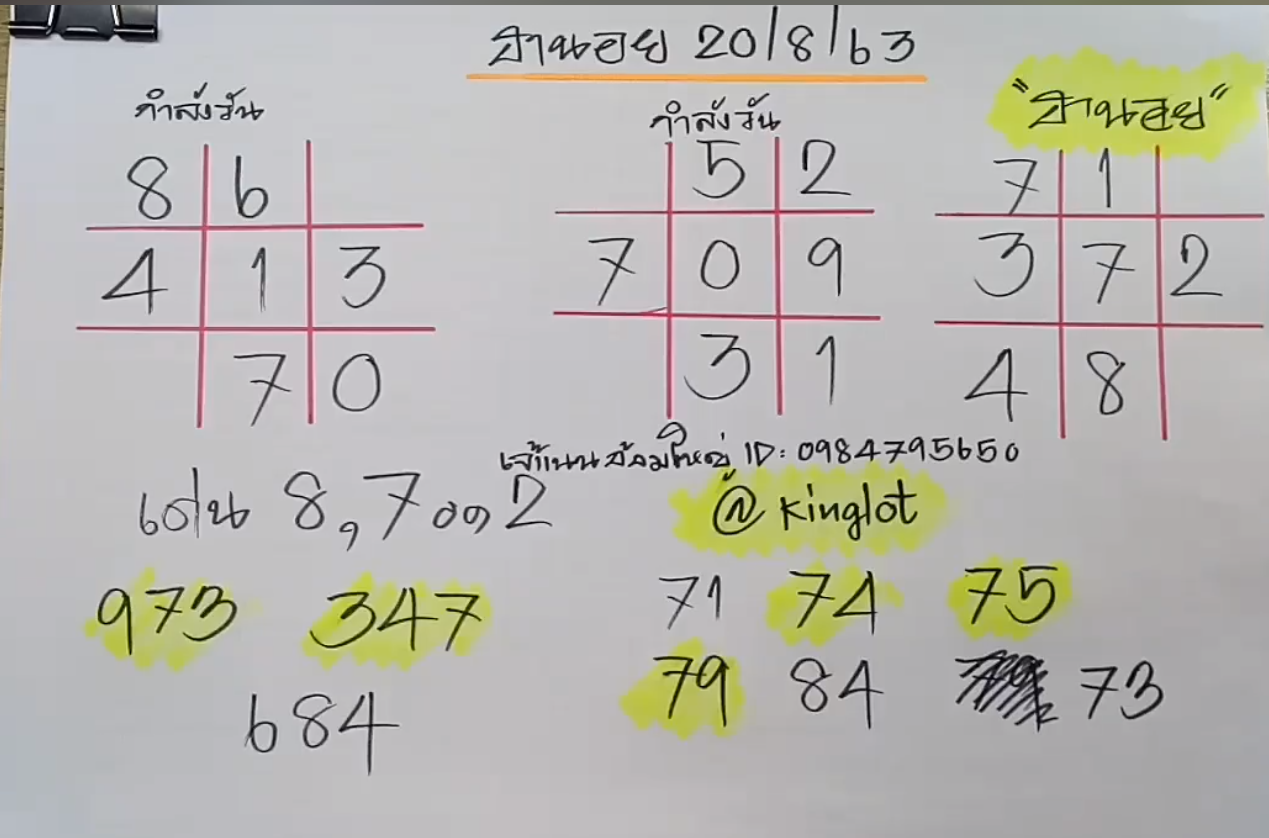 ฮานอย 20/8/63
กำลังวัน กำลังวัน "ฮานอย"
8 6 5 2 7 1
4 1 3 7 0 9 3 7 2
7 0 3 1 4 8
เจ๊แนนล้อมใหญ่ ID: 0984795650
เด่น 8,7 รอง 2 @kinglot
973 347 71 74 75
79 84 73
684